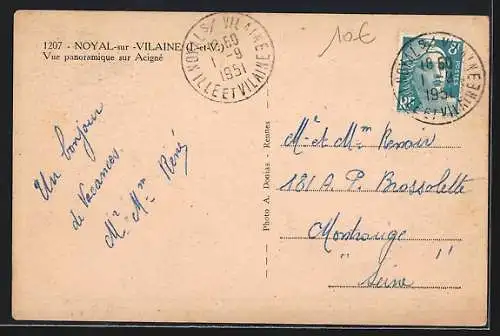 1207 - NOYAL-sur-VILAINE (I.-et-V.)
Vue panoramique sur Acigné
10€
NOYAL S/ VILAINE
18 H 50
1 - 9
1951
ILLE ET VILAINE
Un bonjour
de Vacances
Mr Mme René
Photo A. Donias - Rennes
8F
NOYAL S/ VILAINE
18 H 50
1951
ILLE ET VILAINE
Mr et Mme Renoir
181 A. P. Brossolette
Montrouge
" Seine "